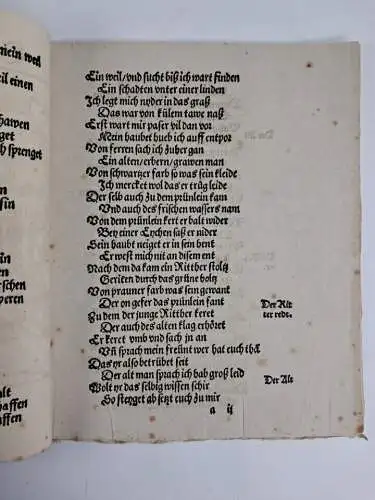 mein weil
eil einen
hawen
get
h sprenget
sin
rschen
yeren
alt
haffen
affen
Ein weil/vnd sucht biß ich wart finden
Ein schadten vnter einer linden
Ich legt mich nyder in das graß
Das war von külem tawe naß
Erst wart mir paser vil dan vor
Mein haubt hueb ich auff entpor
Von ferren sach ich zuher gan
Ein alten/erbern/grawen man
Von schwartzer farb so was sein kleide
Ich mercket wol das er trüg leide
Der selb auch zu dem prünlein kam
Vnd auch des frischen wassers nam
Von dem prünlein kert er balt wider
Bey einer Eychen saß er nider
Sein haubt neiget er in sein hent
Er west mich nit an disem ent
Nach dem da kam ein Ritther stoltz
Geriten durch das grüne holtz
Von prauner farb was sein gewant
Der on gefer das prünlein fant
Der Rit
Zu dem der junge Ritther keret
ter redt.
Der auch des alten klag erhöret
Er keret vmb vnd sach jn an
Vñ sprach mein freünt wer hat euch thã
Das yr also betrübt seit
Der alt man sprach ich hab groß leid
Der Alt
Wolt yr das selbig wissen schir
So steyget ab setzt euch zu mir
a ij